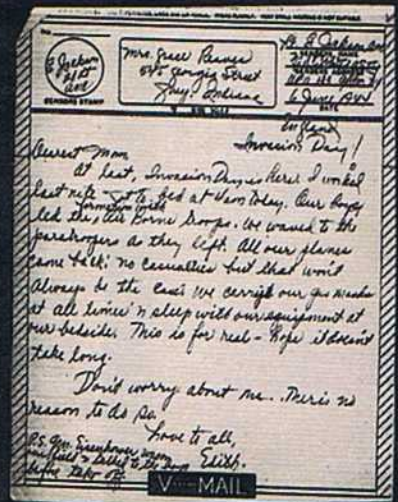 Mrs. Grace
Georgia Street
Gary, Indiana
SENDER'S NAME
SENDER'S ADDRESS
6 June
DATE
CENSOR'S STAMP
England
Invasion Day!
Dearest Mom
At last, Invasion Day is here! I worked
last nite got to bed at 4am today. Our boys
led the formation with Air Borne Troops. We waved to the
paratroopers as they left. All our planes
came back; no casualties but that won't
always be the case. We carry our gas masks
at all times 'n sleep with our equipment at
our bedside. This is for real - Hope it doesn't
take long.
Don't worry about me. There is no
reason to do so.
Love to all,
Edith.
P.S. Gen. Eisenhower
field & talked to the boys
before take off
V-MAIL